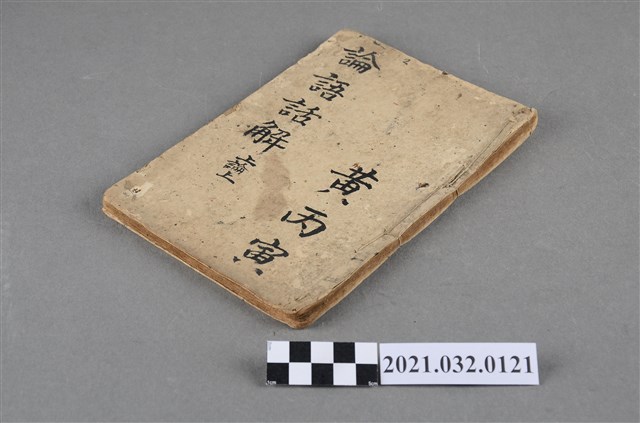 論語話解
上論上
黃丙寅
2021.032.0121